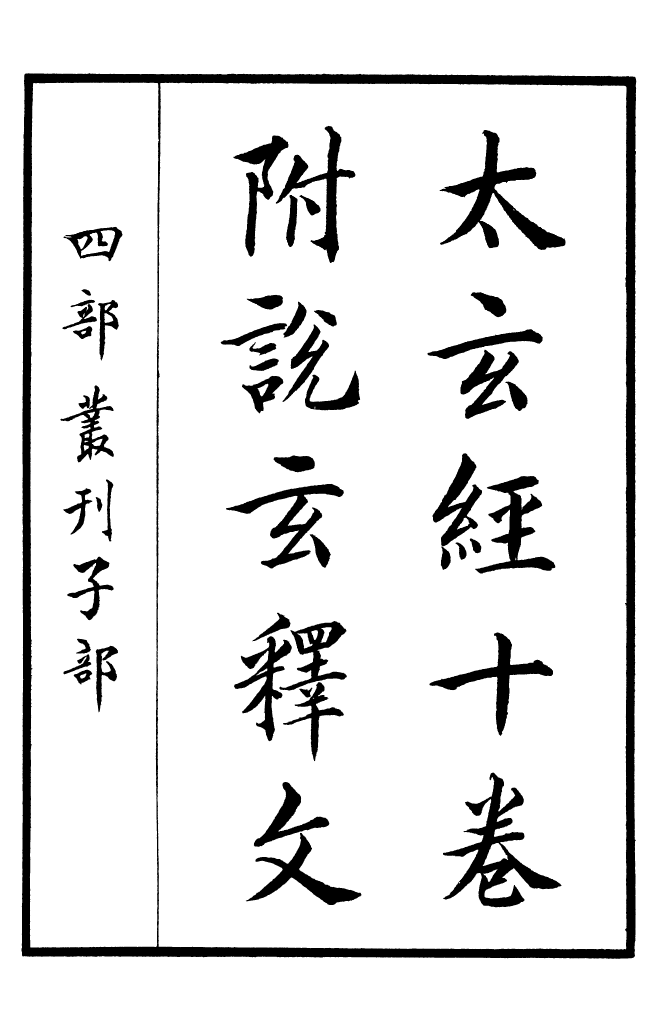 太玄經十卷
附說玄釋文
四部叢刊子部